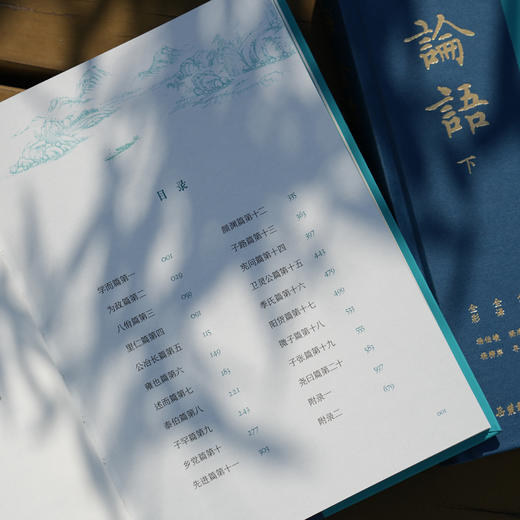 目录
学而篇第一 001
为政篇第二 029
八佾篇第三 059
里仁篇第四 091
公冶长篇第五 115
雍也篇第六 149
述而篇第七 183
泰伯篇第八 221
子罕篇第九 243
乡党篇第十 277
先进篇第十一 303
颜渊篇第十二 335
子路篇第十三 363
宪问篇第十四 397
卫灵公篇第十五 443
季氏篇第十六 479
阳货篇第十七 499
微子篇第十八 533
子张篇第十九 555
尧曰篇第二十 583
附录一 597
附录二 679
001
論語
下